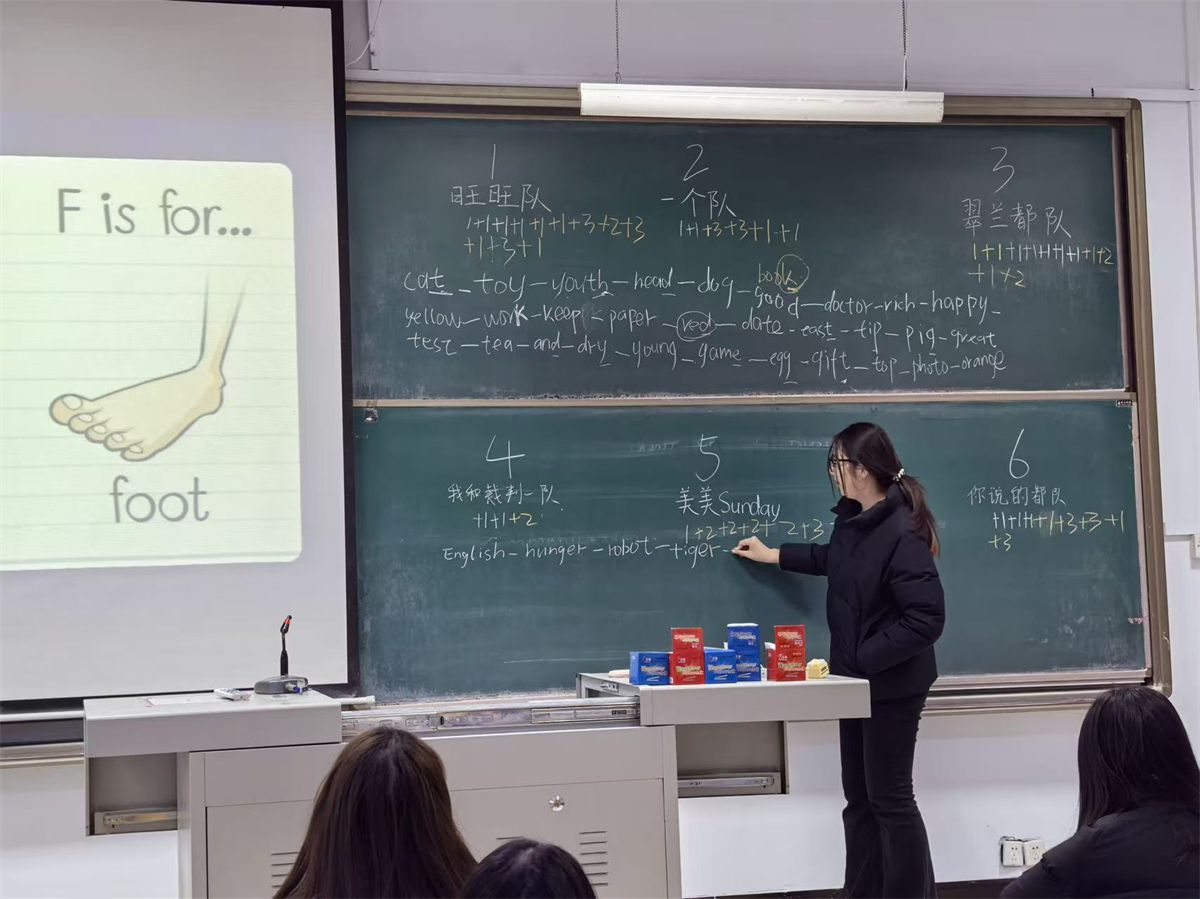 F is for...
foot
1
旺旺队
1+1+1+1+1+1+3+2+3
+1+3+1
2
一个队
1+1+3+3+1+1
3
翠兰都队
1+1+1+1+1+1+1+1+2
+1+2
book
cat - toy - youth - head - dog - good - doctor - rich - happy -
yellow - work - keep - paper - red - date - east - tip - pig - great
test - tea - and - dry - young - game - egg - gift - top - photo - orange
4
我和裁判一队
+1+1+2
5
美美Sunday
1+2+2+2+2+3
6
你说的都队
+1+1+1+1+3+3+1
+3
English - hunger - robot - tiger -